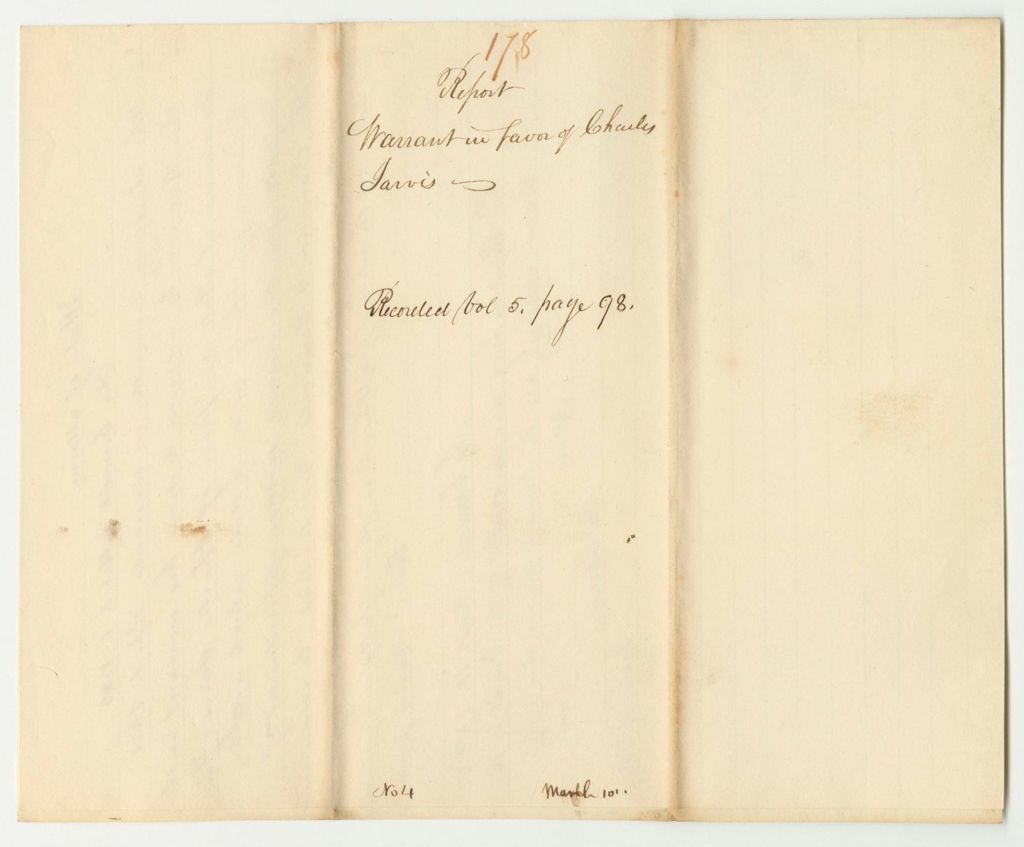 178
Report
Warrant in favor of Charles
Jarvis
Recorded Vol 5. page 98.
No 4 March 10.